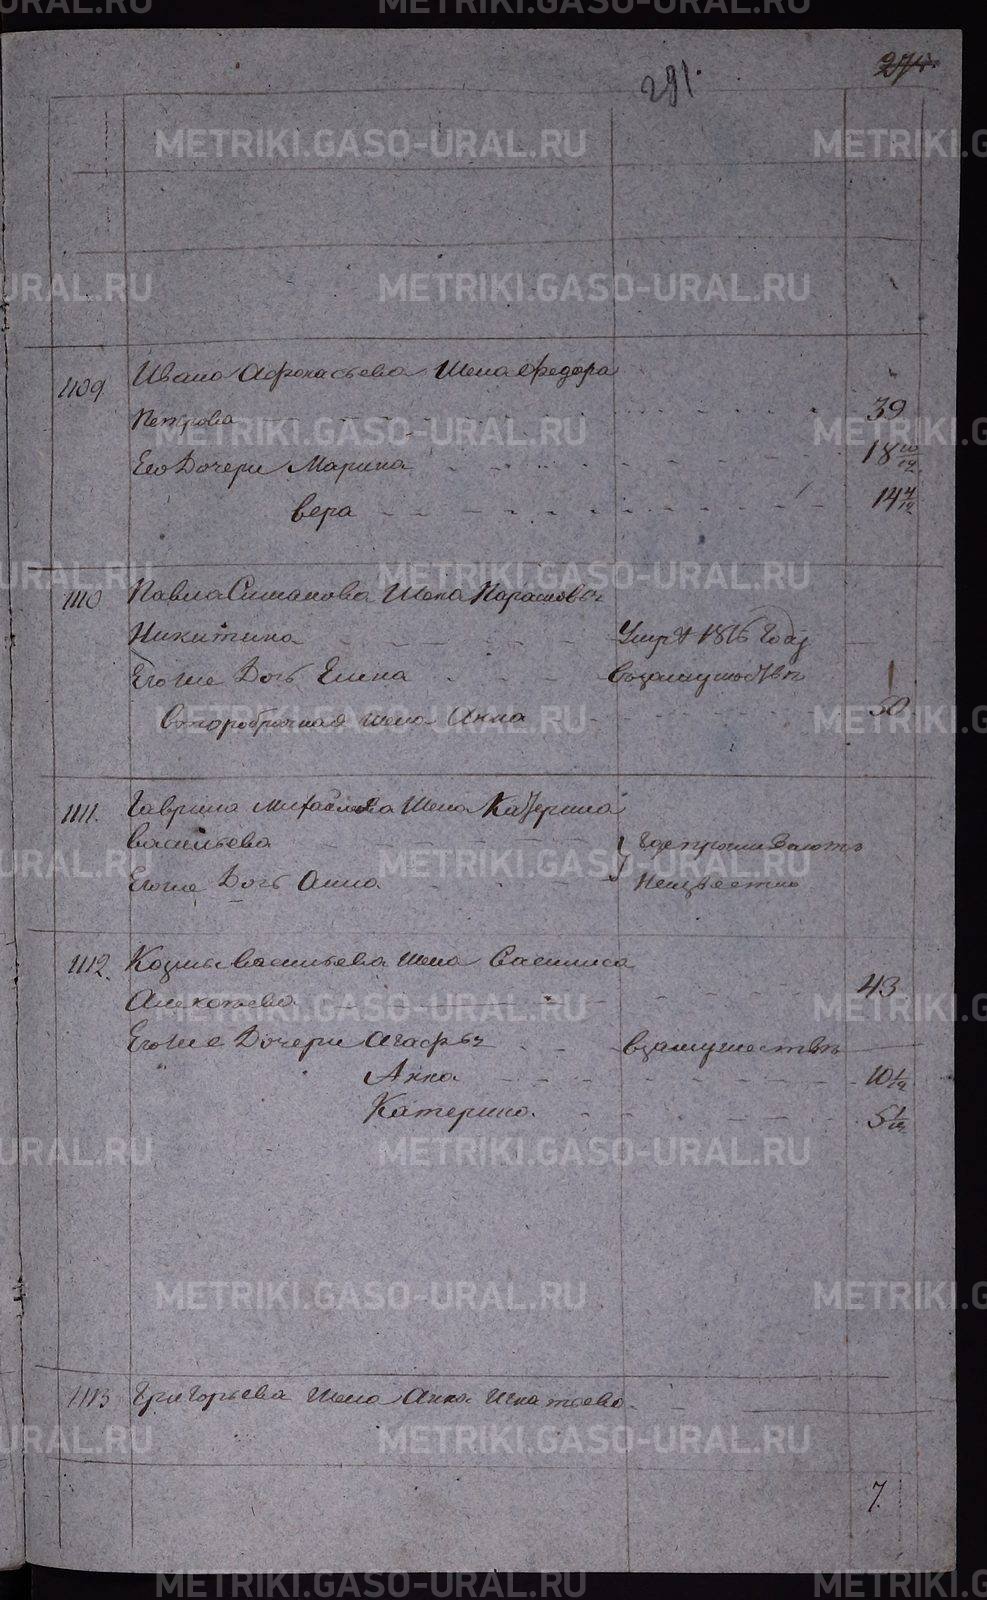 291.
274.
1109 Ивана Афонасьева Жена Федора
Петрова 39
Его Дочери Марина 18 10/12
Вера 14 4/12
1110 Павла Симанова Жена Парасковья
Никитина Умре 1816 Года
Его же Дочь Елена в замужестве
Второбрачная жена Анна 50
1111. Гаврила Михайлова Жена Катерина
Васильева Где проживают
Его же Дочь Анна Неизвестно
1112. Козмы Васильева жена Василиса
Алексеева 43
Его же Дочери Агафья в замужестве
Анна 10 1/12
Катерина. 5 1/12
1113 Григорьева Жена Анна Игнатьева
7.
METRIKI.GASO-URAL.RU